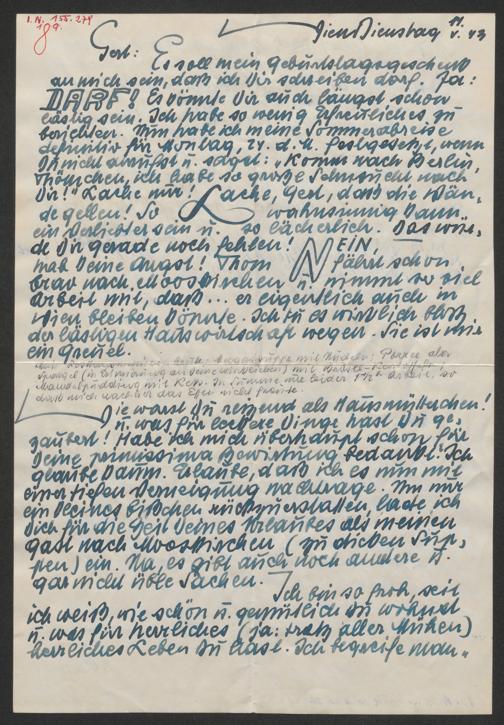 I.N. 155.278
Wien Dienstag 11. V. 43
Gert: Es soll mein Geburtstagsgeschenk
an mich sein, daß ich Dir schreiben darf. Ja:
DARF! Es könnte Dir auch längst schon
lästig sein. Ich habe so wenig Erfreuliches zu
berichten. Nun habe ich meine Sommerabreise
definitiv für Montag, 24. d. M. festgesetzt, wenn
Du nicht anrufst u. sagst: „Komm nach Berlin,
Thomchen, ich habe so große Sehnsucht nach
Dir!" Lache nur! Lache, Gert, daß die Wän-
de gellen! So wahnsinnig kann
ein Verliebter sein u. so lächerlich. Das wür-
de Dir gerade noch fehlen! NEIN,
hab keine Angst! Thom fährt schon
brav nach Mooskirchen u. nimmt so viel
Arbeit mit, daß ... er eigentlich auch in
Wien bleiben könnte. Ich tu es wirklich bloß
der lästigen Hauswirtschaft wegen. Sie ist mir
ein Greuel.
mit Nudeln:
Spargel
Mandelpudding mit
daß mich nachher das Essen nicht freute.
Wie warst Du reizend als Hausmütterchen!
u. was für leckere Dinge hast Du ge-
zaubert! Habe ich mich überhaupt schon für
Deine primissima Bewirtung bedankt? Ich
glaube kaum. Erlaube, daß ich es nun mit
einer tiefen Verneigung nachtrage. Um nur
ein kleines bißchen rückzuerstatten, lade ich
Dich für die Zeit Deines Urlaubes als meinen
Gast nach Mooskirchen (zu dicken Sup-
pen) ein. Na, es gibt auch noch andere u.
gar nicht üble Sachen.
Ich bin so froh, seit
ich weiß, wie schön u. gemütlich Du wohnst
u. was für herrliches (ja: trotz aller Mühen)
herrliches Leben Du hast. Ich begreife nun